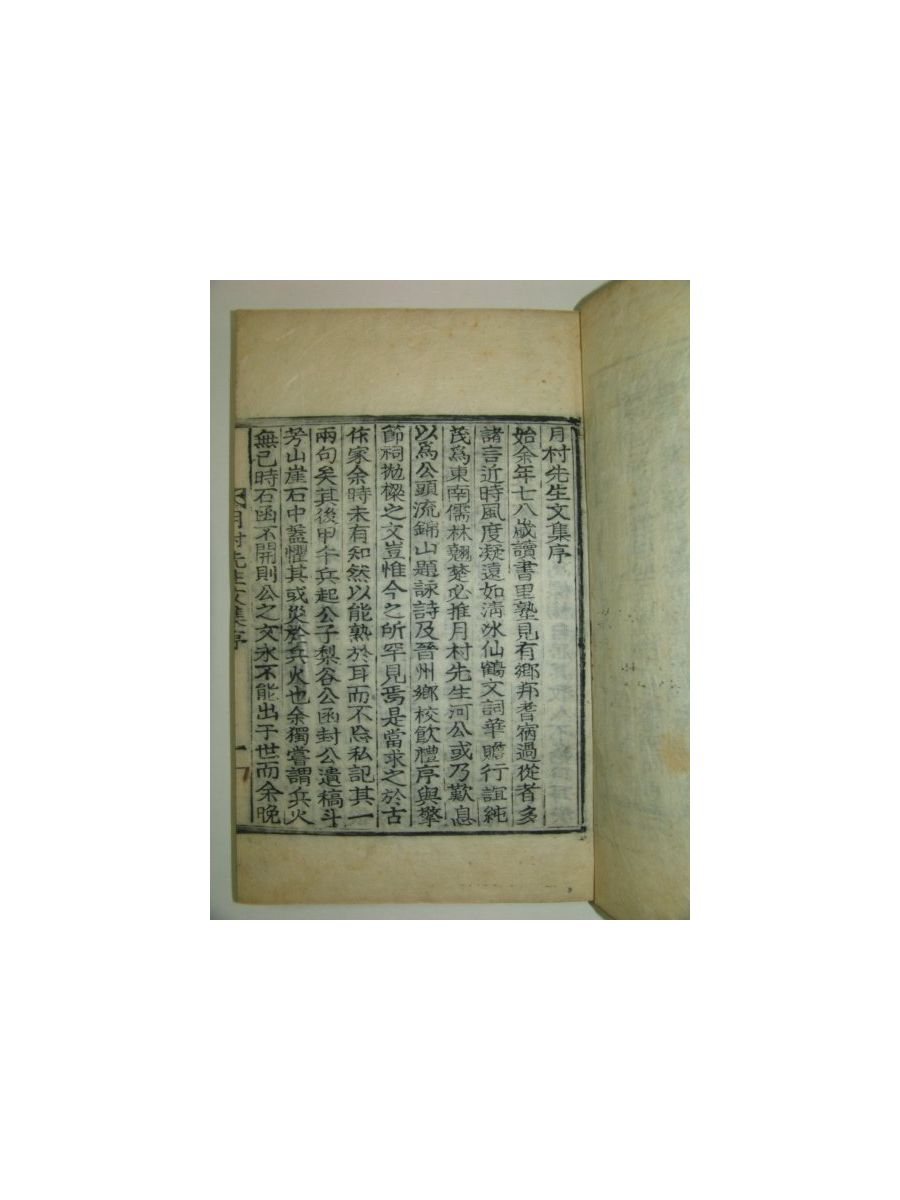 月村先生文集序
始余年七八歲讀書里塾見有鄉邦耆宿過從者多
諸言近時風度凝遠如淸氷仙鶴文詞華贍行誼純
茂爲東南儒林翹楚必推月村先生河公或乃歎息
以爲公頭流錦山題詠詩及晉州鄉校飮禮序與擎
節祠拋樑之文豈惟今之所罕見焉是當求之於古
作家余時未有知然以能熟於耳而不忘私記其一
兩句矣其後甲午兵起公子梨谷公函封公遺稿斗
芳山崖石中蓋懼其或災於兵火也余獨嘗謂兵火
無已時石函不開則公之文永不能出于世而余晚
月村先生文集序 一